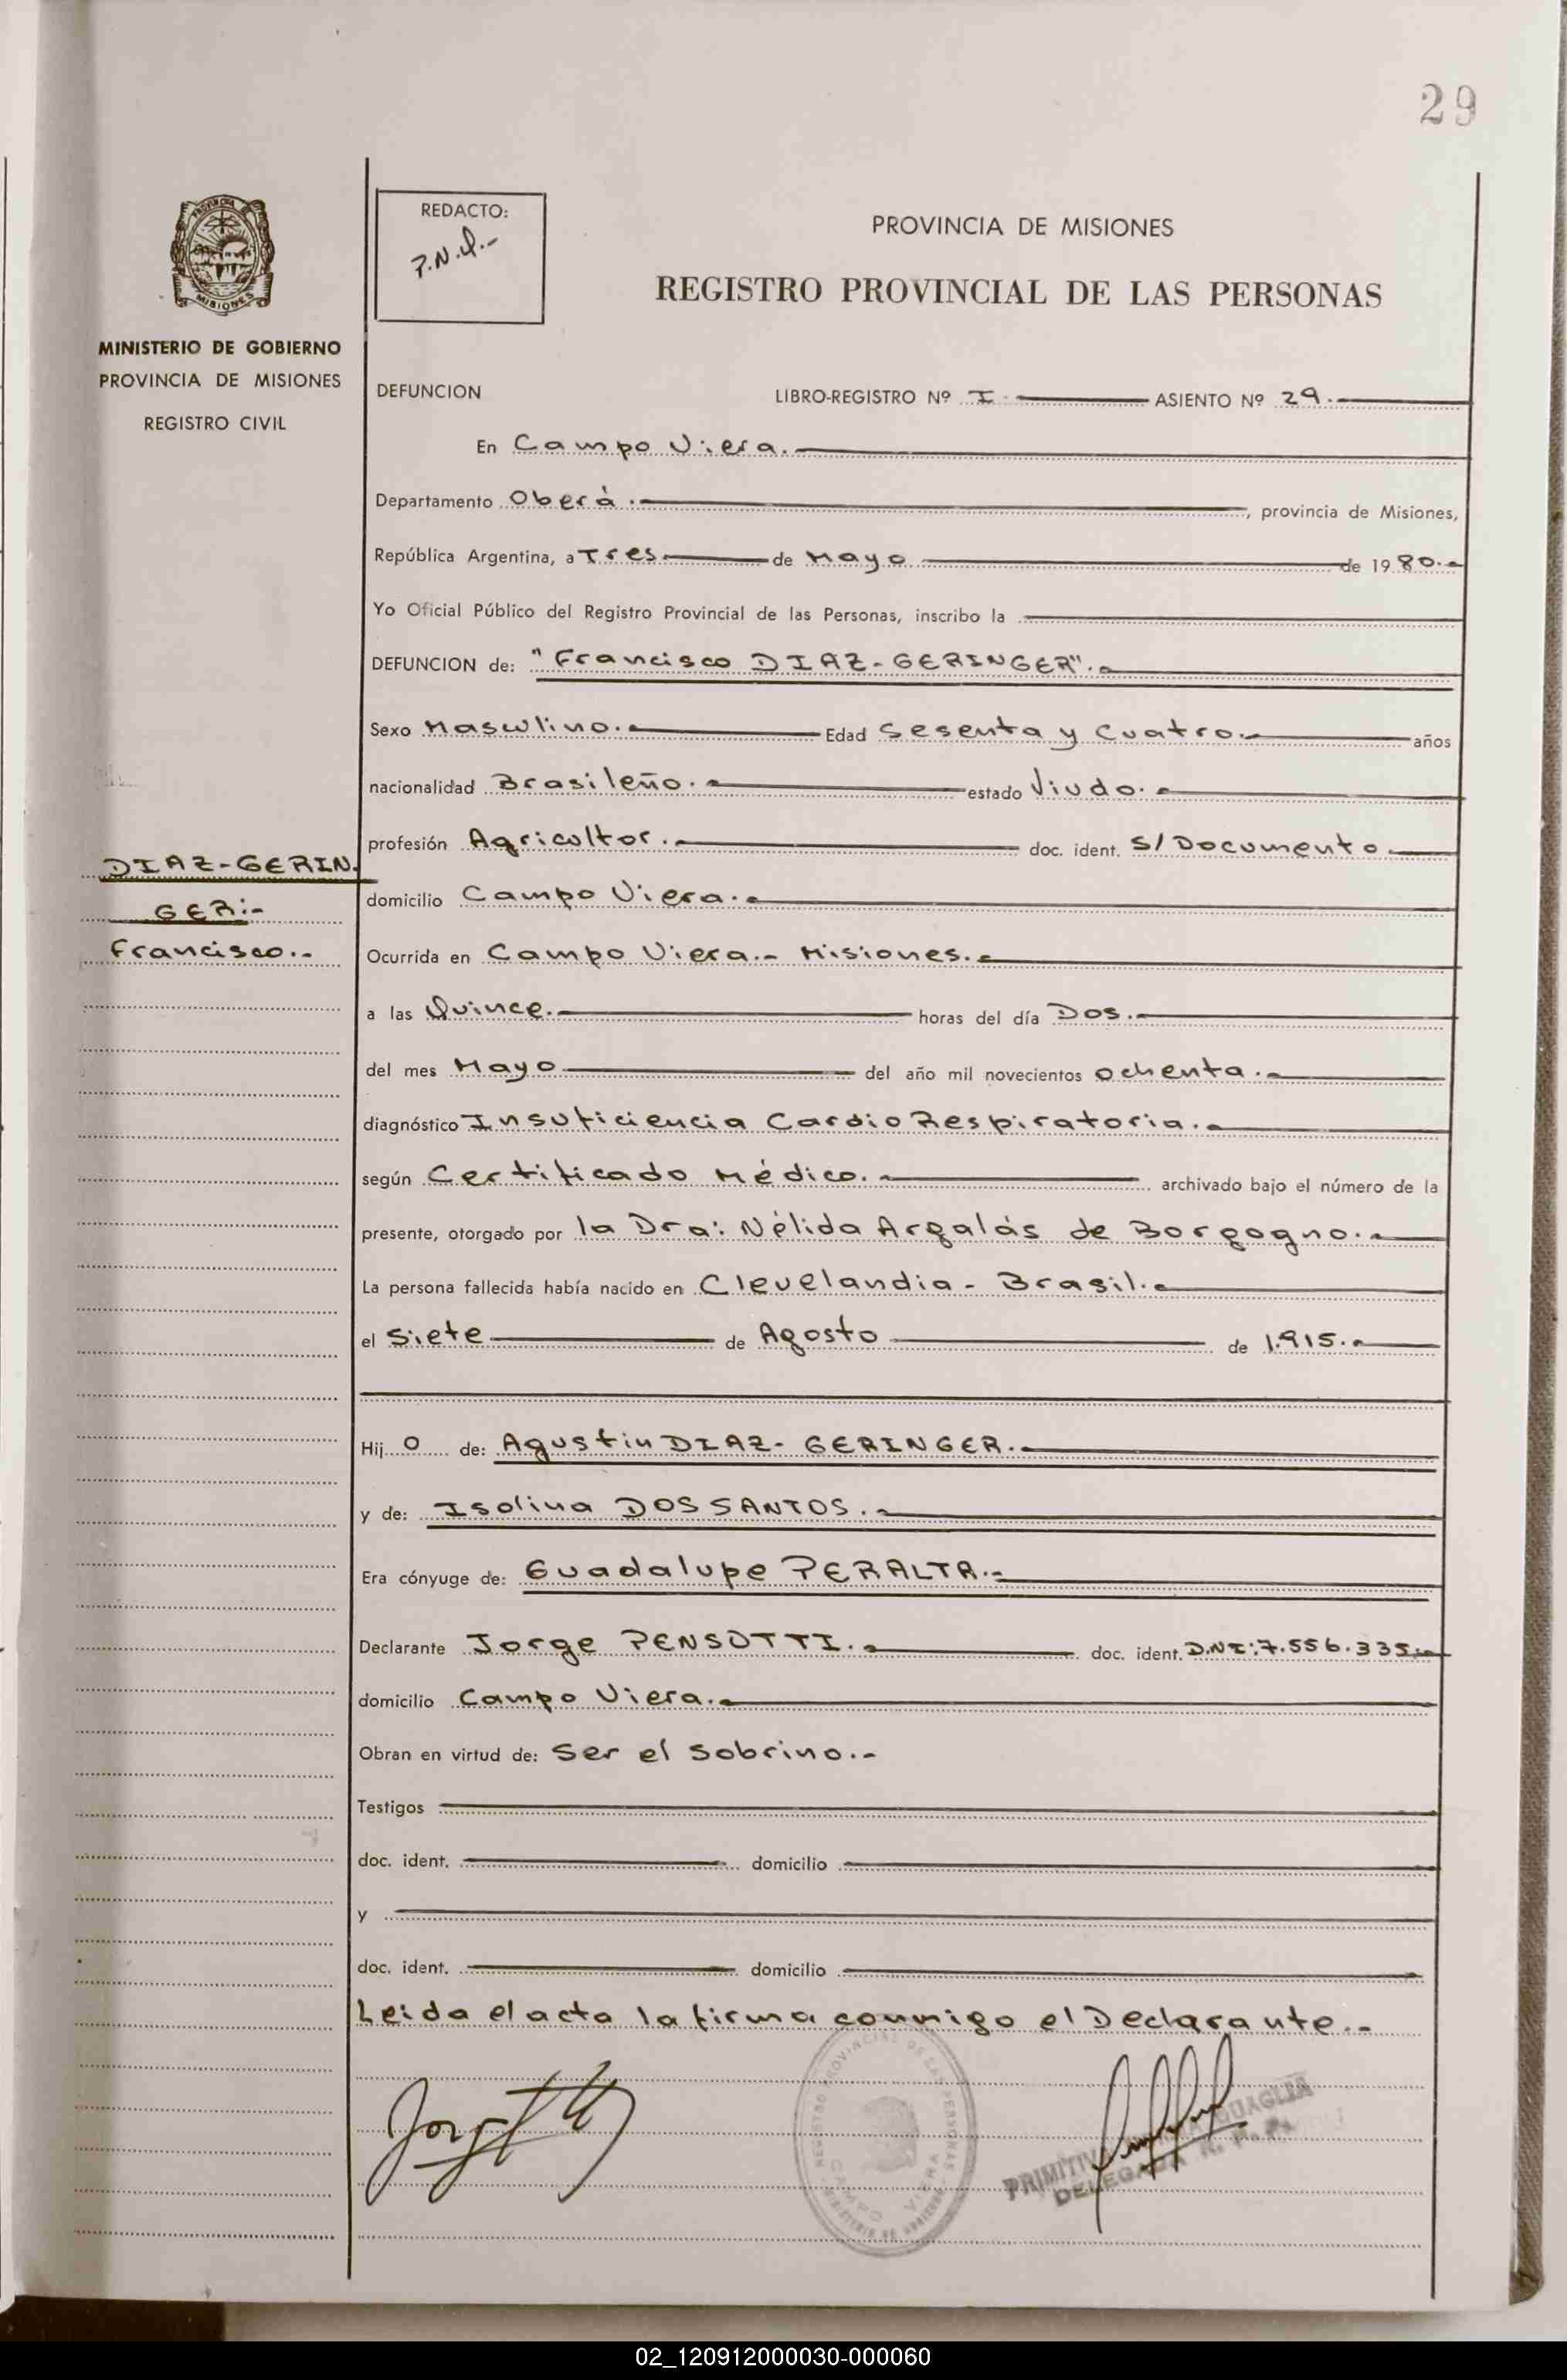 29
REDACTO:
P.N.Q.-
PROVINCIA DE MISIONES
REGISTRO PROVINCIAL DE LAS PERSONAS
MISIONES
MINISTERIO DE GOBIERNO
PROVINCIA DE MISIONES
REGISTRO CIVIL
DEFUNCION LIBRO-REGISTRO Nº I ASIENTO Nº 29.
En Campo Viera.
Departamento Oberà. , provincia de Misiones,
República Argentina, a Tres de Mayo de 1980.-
Yo Oficial Público del Registro Provincial de las Personas, inscribo la
DEFUNCION de: "Francisco DIAZ-GERINGER".-
Sexo Masculino.- Edad Sesenta y Cuatro.- años
nacionalidad Brasileño.- estado Viudo.-
profesión Agricultor.- doc. ident. S/Documento
DIAZ-GERIN.
GER:-
Francisco.-
domicilio Campo Viera.-
Ocurrida en Campo Viera.- Misiones.-
a las Quince.- horas del día Dos.-
del mes Mayo del año mil novecientos ochenta.-
diagnóstico Insuficiencia CardioRespiratoria.-
según Certificado Médico.- archivado bajo el número de la
presente, otorgado por la Dra: Nélida Argalás de Borgogno.-
La persona fallecida había nacido en Clevelandia - Brasil.-
el Siete de Agosto de 1.915.-
Hij o de: Agustin DIAZ-GERINGER.-
y de: Isolina DOS SANTOS.-
Era cónyuge de: Guadalupe PERALTA.-
Declarante Jorge PENSOTTI.- doc. ident. D.NI:7.556.335.-
domicilio Campo Viera.-
Obran en virtud de: Ser el sobrino.-
Testigos
doc. ident. domicilio
y
doc. ident. domicilio
Leida el acta la firma conmigo el Declarante.-
REGISTRO PROVINCIAL DE LAS PERSONAS
CAMPO VIERA
MINISTERIO DE GOBIERNO
DELEGADA R. P. P.
02_120912000030-000060